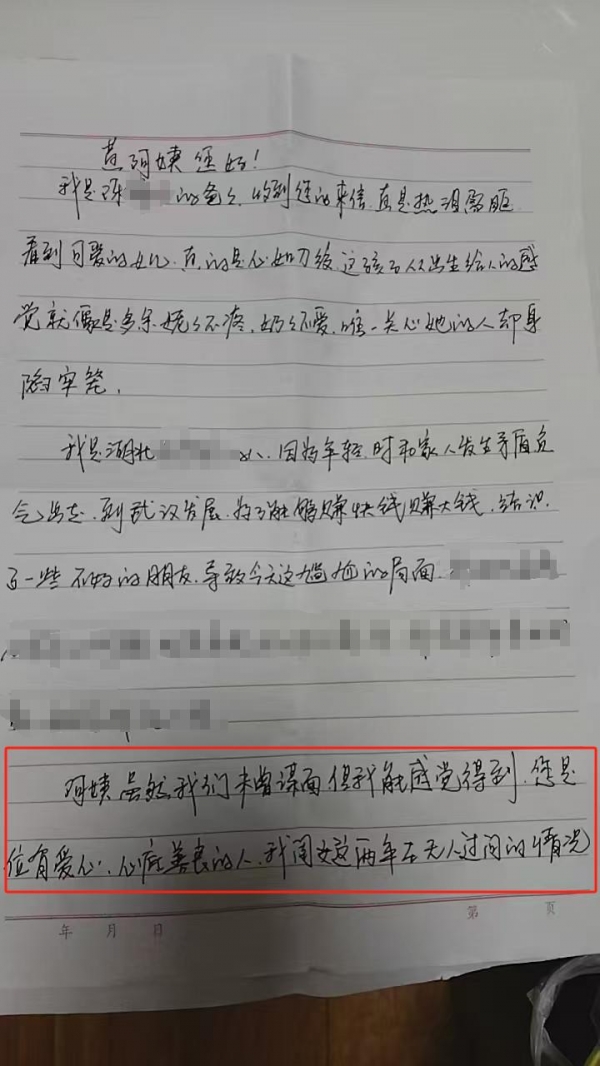 黄阿姨您好！
我是陈 的爸爸，收到您的来信，真是热泪盈眶
看到可爱的女儿，真的是心如刀绞，这孩子从出生给人的感
觉就像是多余，姥姥不疼，奶奶不爱，唯一关心她的人却身
陷牢笼，
我是湖北 人，因为年轻时和家人发生矛盾负
气出走，到武汉发展，为了能够赚快钱赚大钱，结识
了一些不好的朋友，导致今天这尴尬的局面
阿姨虽然我们未曾谋面但我能感觉得到，您是
位有爱心，心底善良的人，我闺女这两年在无人过问的情况
第 页
年 月 日